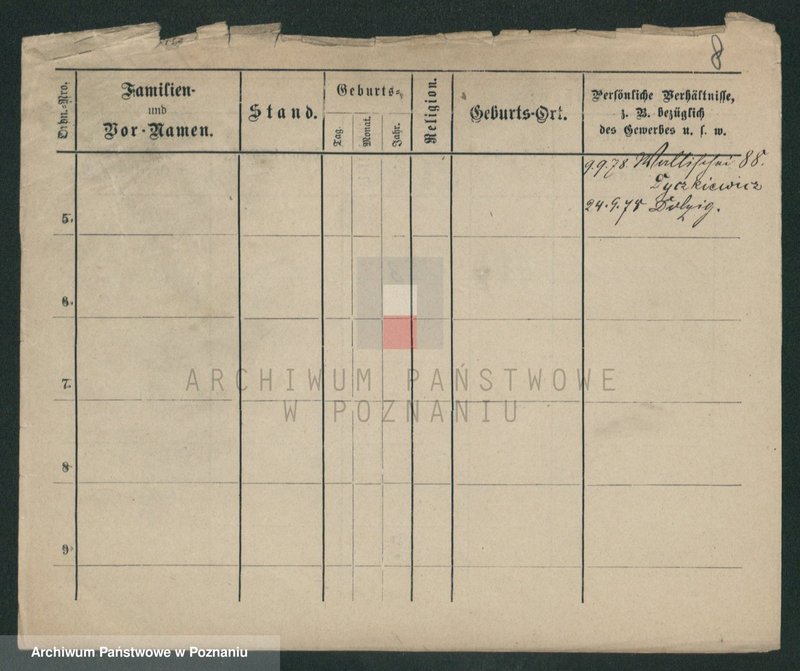 8
Ordn.-Nro.
Familien-
und
Vor-Namen.
Stand.
Geburts-
Tag.
Monat.
Jahr.
Religion.
Geburts-Ort.
Persönliche Verhältnisse,
z. B. bezüglich
des Gewerbes u. s. w.
9.9.78 Wallischei 88
Tyczkiewicz
24.9.78 Dolzig.
5.
6.
7.
8
9
ARCHIWUM PAŃSTWOWE
W POZNANIU
Archiwum Państwowe w Poznaniu